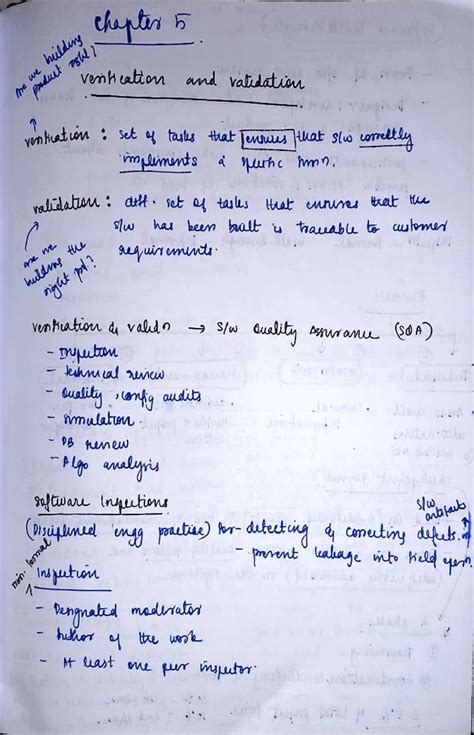 chapter 5
are we building product right?
verification and validation
verification : set of tasks that ensures that s/w correctly
implements a specific funcn.
validation : diff. set of tasks that ensures that the
s/w has been built is traceable to customer
requirements.
are we building the right pd?
verification & validn → s/w Quality Assurance (SQA)
- Inspection
- technical review
- Quality, config audits
- simulation
- DB review
- Algo analysis
software Inspections
s/w artifacts
(Disciplined engg practise) for - detecting & correcting defects.
- prevent leakage into field opern.
non-formal
Inspection
- Designated moderator
- Author of the work
- At least one peer inspector.